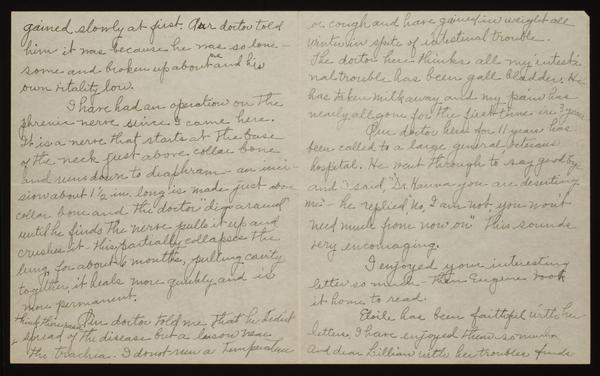 gained slowly at first. Our doctor told
him it was because he was so lone-
some and broken up about me and his
own vitality low.
I have had an operation on the
phrenic nerve since I came here.
It is a nerve that starts at the base
of the neck just above collar bone
and runs down to diaphram - an inci-
sion about 1 1/2 in long is made just above
collar bone and the doctor "digs around"
until he finds the nerve pulls it up and
crushes it. This partially collapses the
lung for about 6 months, pulling cavity
together, it heals more quickly and is
more permanent.
Our doctor told me that he didnt
spread of the disease but a lesion near
the trachia. I do not run a temperature
or cough and have gained in weight all
winter in spite of intestinal trouble.
The doctor here thinks all my intesti-
nal trouble has been gall bladder. He
has taken milk away and my pain has
nearly all gone for the first time in 3 years
Our doctor here for 11 years has
been called to a large general veterans
hospital. He went through to say goodby
and I said, "Dr. Hanna you are deserting
me" - he replied "No, I am not, you wont
need much from now on" This sounds
very encouraging.
I enjoyed your interesting
letter so much - Then Eugene took
it home to read.
has been faithful with her
letters, I have enjoyed them so much
And dear Lillian with her troubles finds